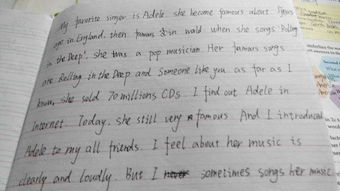 My favorite singer is Adele. she become famous about years
ago in England. then famous in wald when she songs Rolling
in the Deep'. she was a pop musician. Her famous songs
are Rolling in the Deep and Someone like you as far as I
know, she sold 70 millions CDs. I find out Adele in
Internet. Today. she still very famous. And I introduced
Adele to my all friends. I feel about her music is
clearly and loudly. But I sometimes songs her music